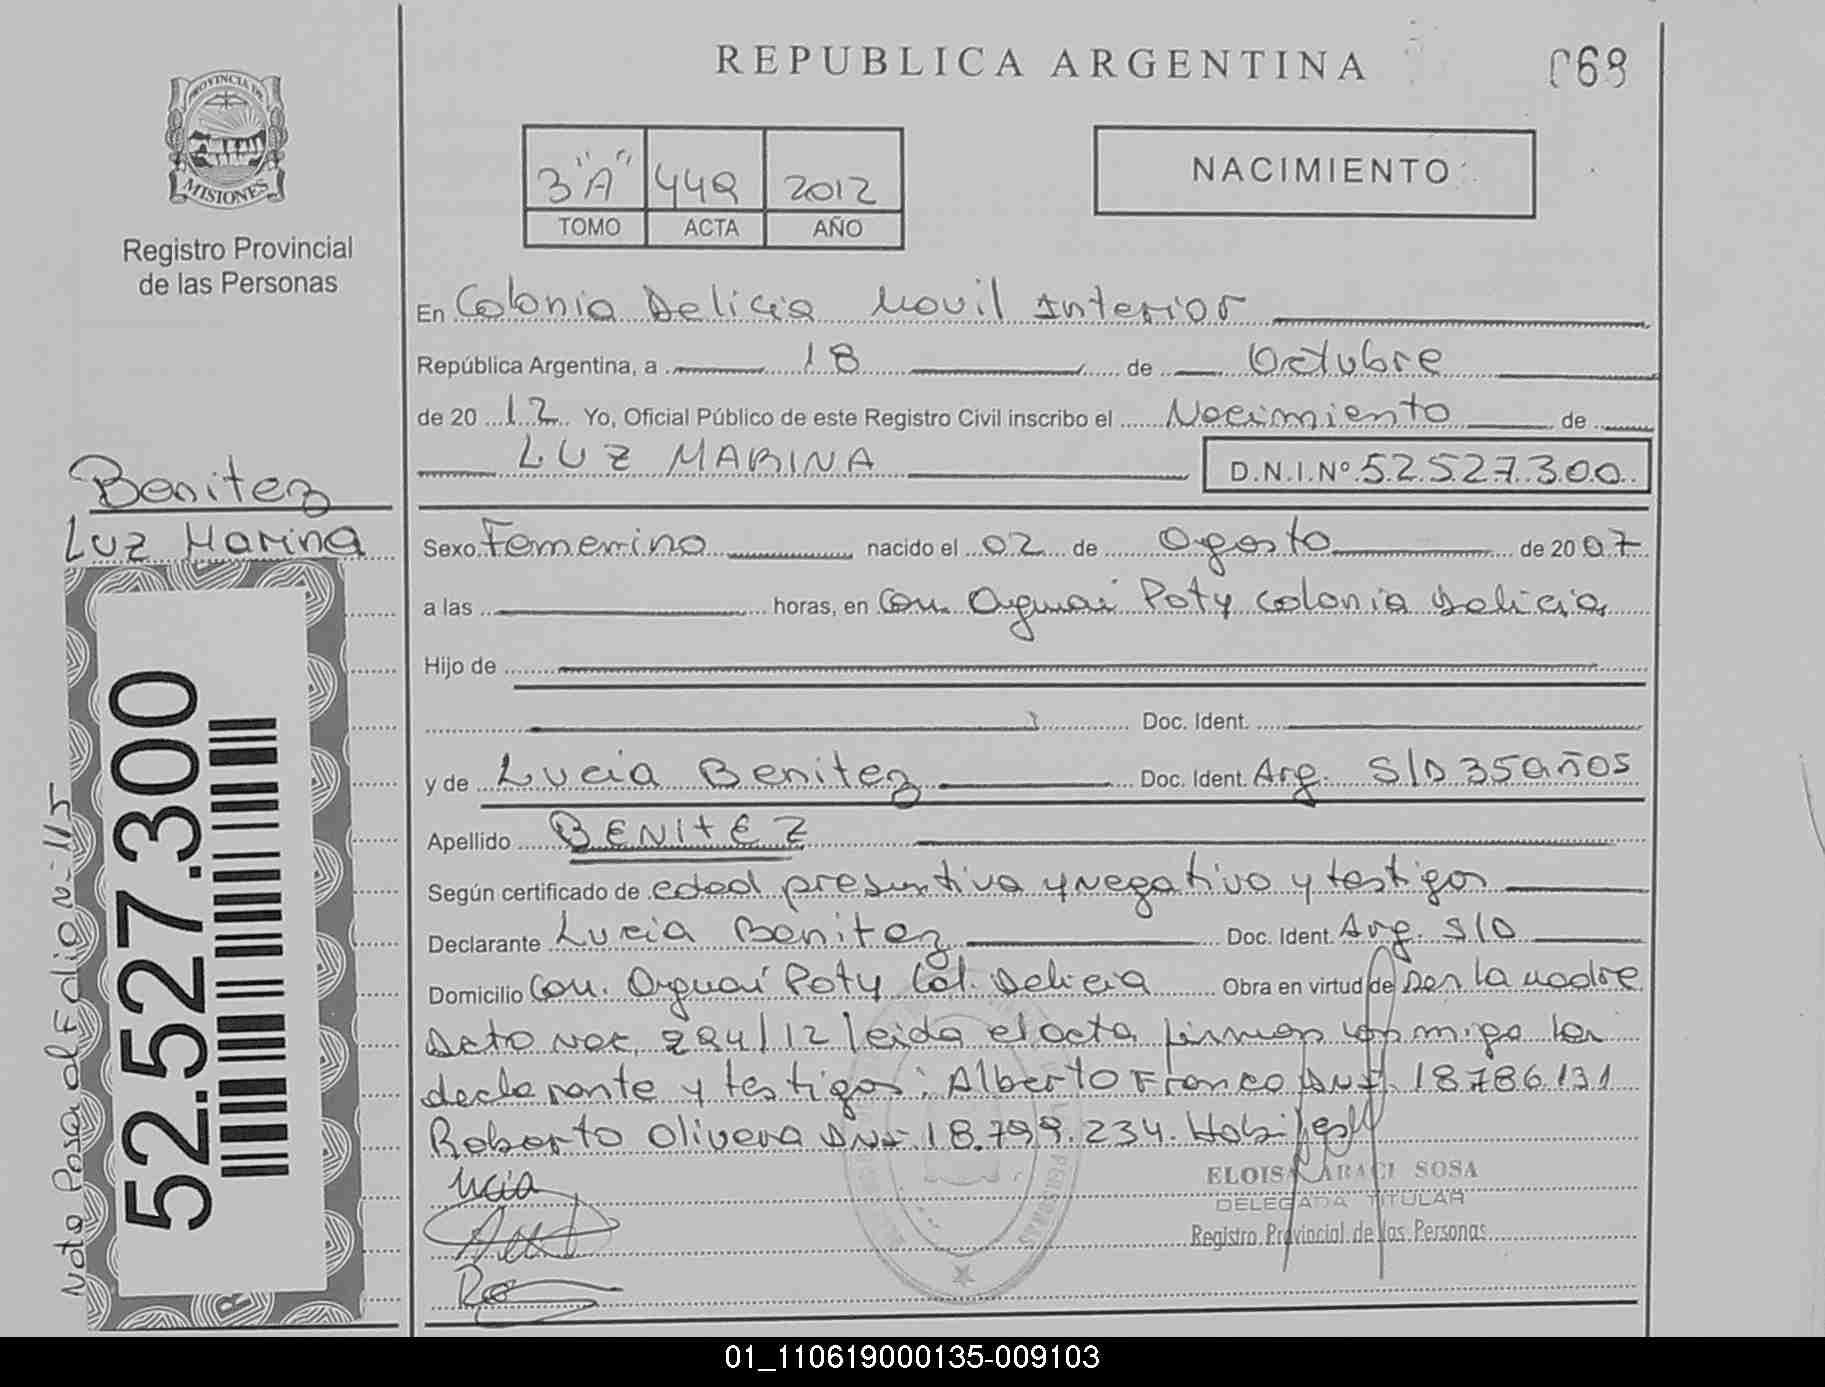 REPUBLICA ARGENTINA
068
PROVINCIA DE
MISIONES
Registro Provincial
de las Personas
3 "A" 449 2012
TOMO ACTA AÑO
NACIMIENTO
En Colonia Delicia Movil Interior
República Argentina, a 18 de Octubre
de 20 12 Yo, Oficial Público de este Registro Civil inscribo el Nacimiento de
LUZ MARINA
D.N.I.Nº 52.527.300
Benitez
Luz Marina
Sexo Femenino nacido el 02 de Agosto de 2007
a las horas, en Com. Poty Colonia Delicia
Hijo de
Doc. Ident.
y de Lucia Benitez Doc. Ident. Arg. S/D 35 años
Apellido BENITEZ
Según certificado de edad presuntiva y negativo y testigos
Declarante Lucia Benitez Doc. Ident. Arg. S/D
Domicilio Com. Poty Col. Delicia Obra en virtud de ser la madre
Acto 294/12 leida el acta firman conmigo la
declarante y testigos: Alberto Franco DNI. 18786.131
Roberto Olivera DNI 18.799.234.
ucia
ELOISA ARACI SOSA
DELEGADA TITULAR
Registro Provincial de las Personas
52.527.300
Nota Pasa al Folio Nº 115
01_110619000135-009103